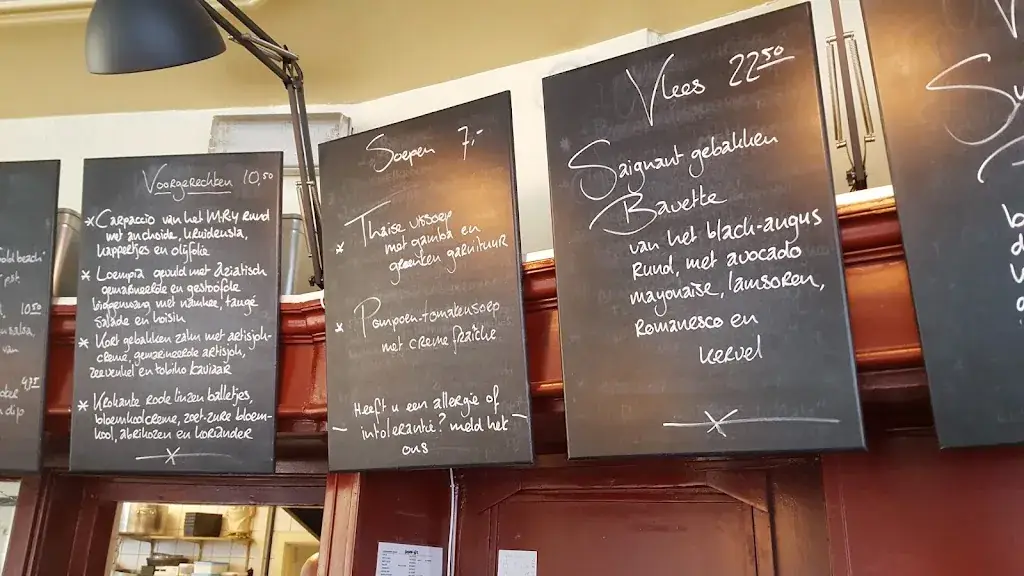 Voorgerechten 10,50
* Carpaccio van het MRY Rund
met anchoide, kruidensla,
kappertjes en olijfolie
* Loempia gevuld met Aziatisch
gemarineerde en gestoofde
kippenwang met wakame, taugé
salade en hoisin
* Kort gebakken zalm met artisjok-
crème, gemarineerde artisjok,
zeevenkel en tobiko kaviaar
* Krokante rode linzen balletjes,
bloemkoolcreme, zoet-zure bloem-
kool, abrikozen en koriander
Soepen 7,-
* Thaise vissoep
met gamba en
groenten garnituur
* Pompoen-tomatensoep
met creme fraîche
Heeft u een allergie of
intolerantie? meld het
ons
Vlees 22,50
Saignant gebakken
Bavette
van het black-angus
Rund, met avocado
mayonaise, lamsoren,
Romanesco en
kervel
beach
10.50
salsa,
4,50
dip